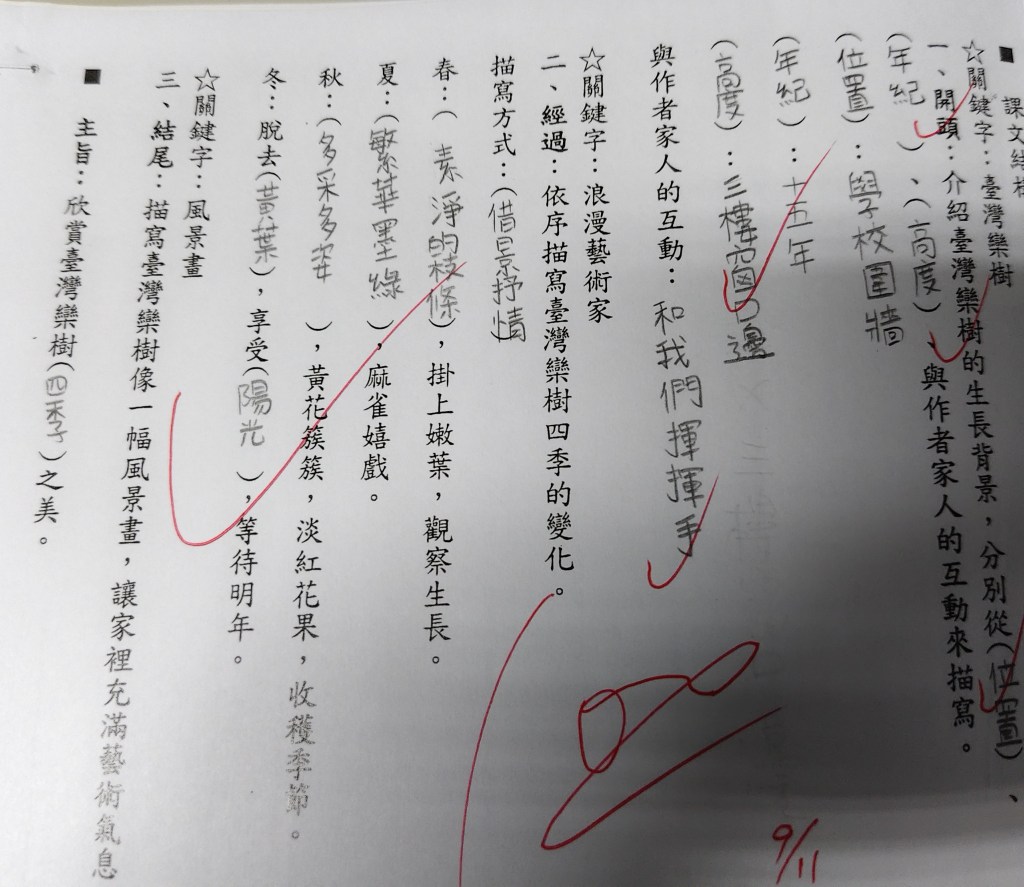 ■ 課文結構
☆關鍵字：臺灣欒樹
一、開頭：介紹臺灣欒樹的生長背景，分別從(位置)、
(年紀)、(高度)、與作者家人的互動來描寫。
(位置)：學校圍牆
(年紀)：十五年
(高度)：三樓窗口邊
與作者家人的互動：和我們揮揮手
☆關鍵字：浪漫藝術家
二、經過：依序描寫臺灣欒樹四季的變化。
描寫方式：(借景抒情)
春：(素淨的枝條)，掛上嫩葉，觀察生長。
夏：(繁華墨綠)，麻雀嬉戲。
秋：(多采多姿)，黃花簇簇，淡紅花果，收穫季節。
冬：脫去(黃葉)，享受(陽光)，等待明年。
☆關鍵字：風景畫
三、結尾：描寫臺灣欒樹像一幅風景畫，讓家裡充滿藝術氣息
■ 主旨：欣賞臺灣欒樹(四季)之美。
9/11